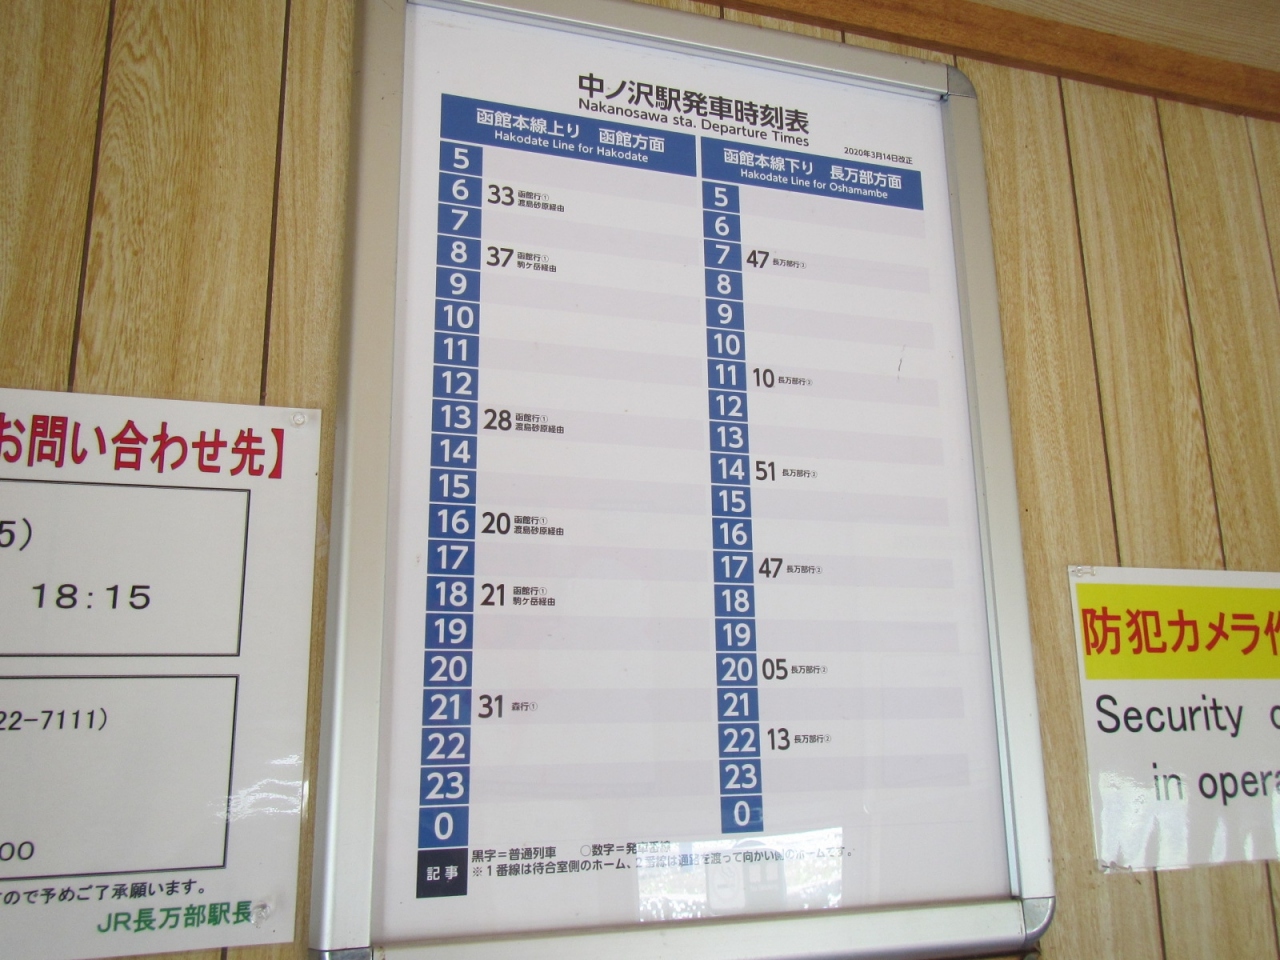 中ノ沢駅発車時刻表
Nakanosawa sta. Departure Times
2020年3月14日改正
函館本線上り　函館方面
Hakodate Line for Hakodate
5
6 33 函館行① 渡島砂原経由
7
8 37 函館行① 駒ケ岳経由
9
10
11
12
13 28 函館行① 渡島砂原経由
14
15
16 20 函館行① 渡島砂原経由
17
18 21 函館行① 駒ケ岳経由
19
20
21 31 森行①
22
23
0
函館本線下り　長万部方面
Hakodate Line for Oshamambe
5
6
7 47 長万部行
8
9
10
11 10 長万部行②
12
13
14 51 長万部行②
15
16
17 47 長万部行
18
19
20 05 長万部行②
21
22 13 長万部行②
23
0
記事
黒字＝普通列車　○数字＝発車番線
※１番線は待合室側のホーム、２番線は通路を渡って向かい側のホームです。
お問い合わせ先】
5）
18：15
22-7111）
00
ので予めご了承願います。
JR長万部駅長
防犯カメラ作
Security c
in opera